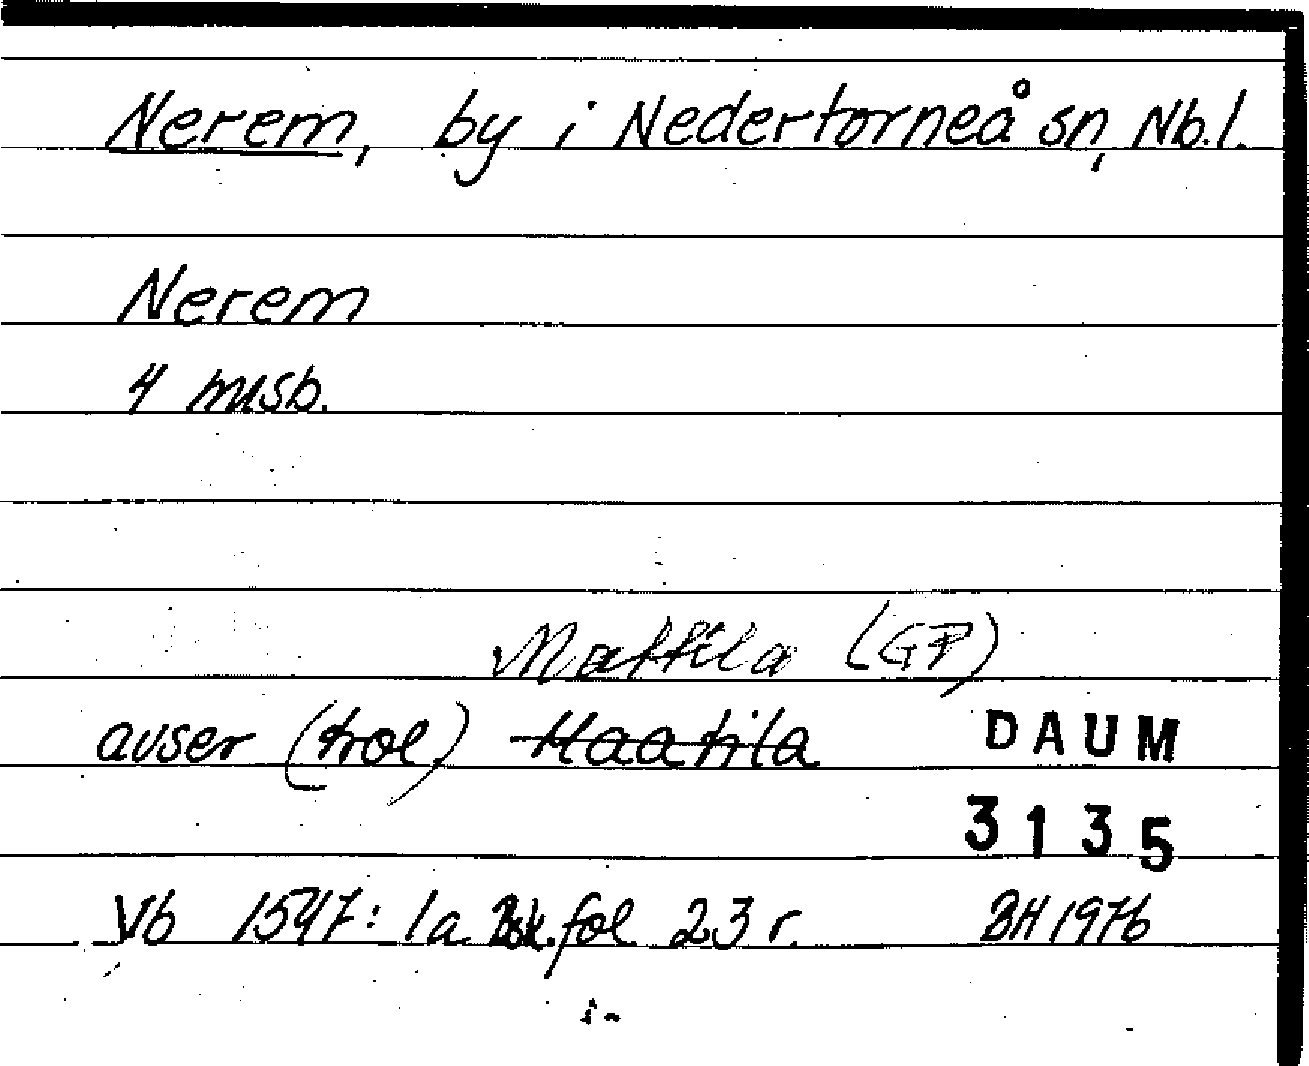 Nerem, by i Nedertorneå sn, Nb.l.
Nerem
4 mɪsb.
Mattila (GP)
avser (trol) Haatila
DAUM
3135
Vb 1547: 1a Bsk. fol 23 r. BH 1976